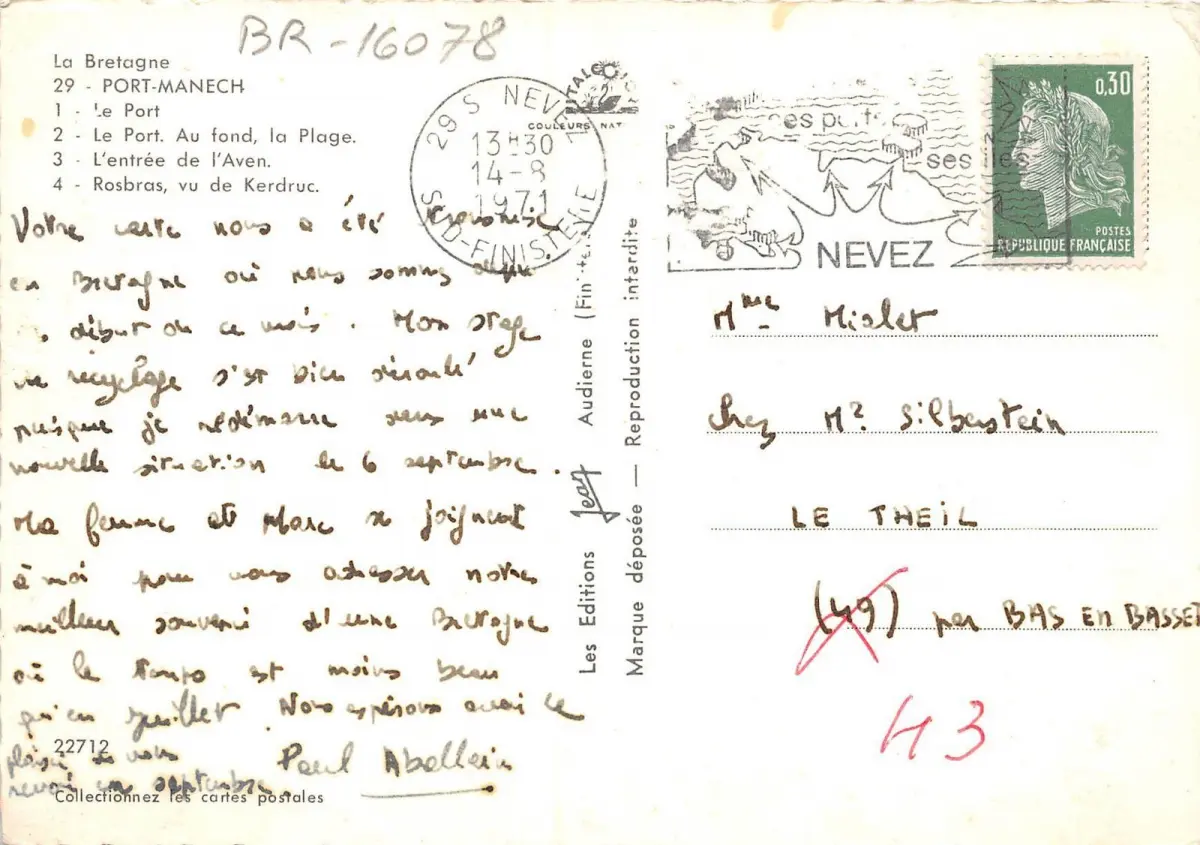 BR-16078
La Bretagne
29 - PORT-MANECH
1 - Le Port
2 - Le Port. Au fond, la Plage.
3 - L'entrée de l'Aven.
4 - Rosbras, vu de Kerdruc.
Votre carte nous a été
en Bretagne où nous sommes depuis
début de ce mois. Mon stage
de recyclage s'est bien déroulé
puisque je redémarre dans une
nouvelle situation le 6 septembre.
Ma femme et Marc se joignent
à moi pour vous adresser notre
meilleur souvenir d'une Bretagne
où le temps est moins beau
qu'en juillet. Nous espérons avoir le
plaisir de vous
revoir en septembre.
Paul Abellain
22712
Collectionnez les cartes postales
COULEURS NAT
29 S NEVEZ
13H30
14-8
1971
SUD-FINISTERE
Les Editions Jean Audierne (Finistère)
Marque déposée — Reproduction interdite
ses ports
ses îles
NEVEZ
0,30
POSTES
RÉPUBLIQUE FRANÇAISE
Mme Mialet
Chez Mr Silberstein
LE THEIL
(49) par BAS EN BASSET
43